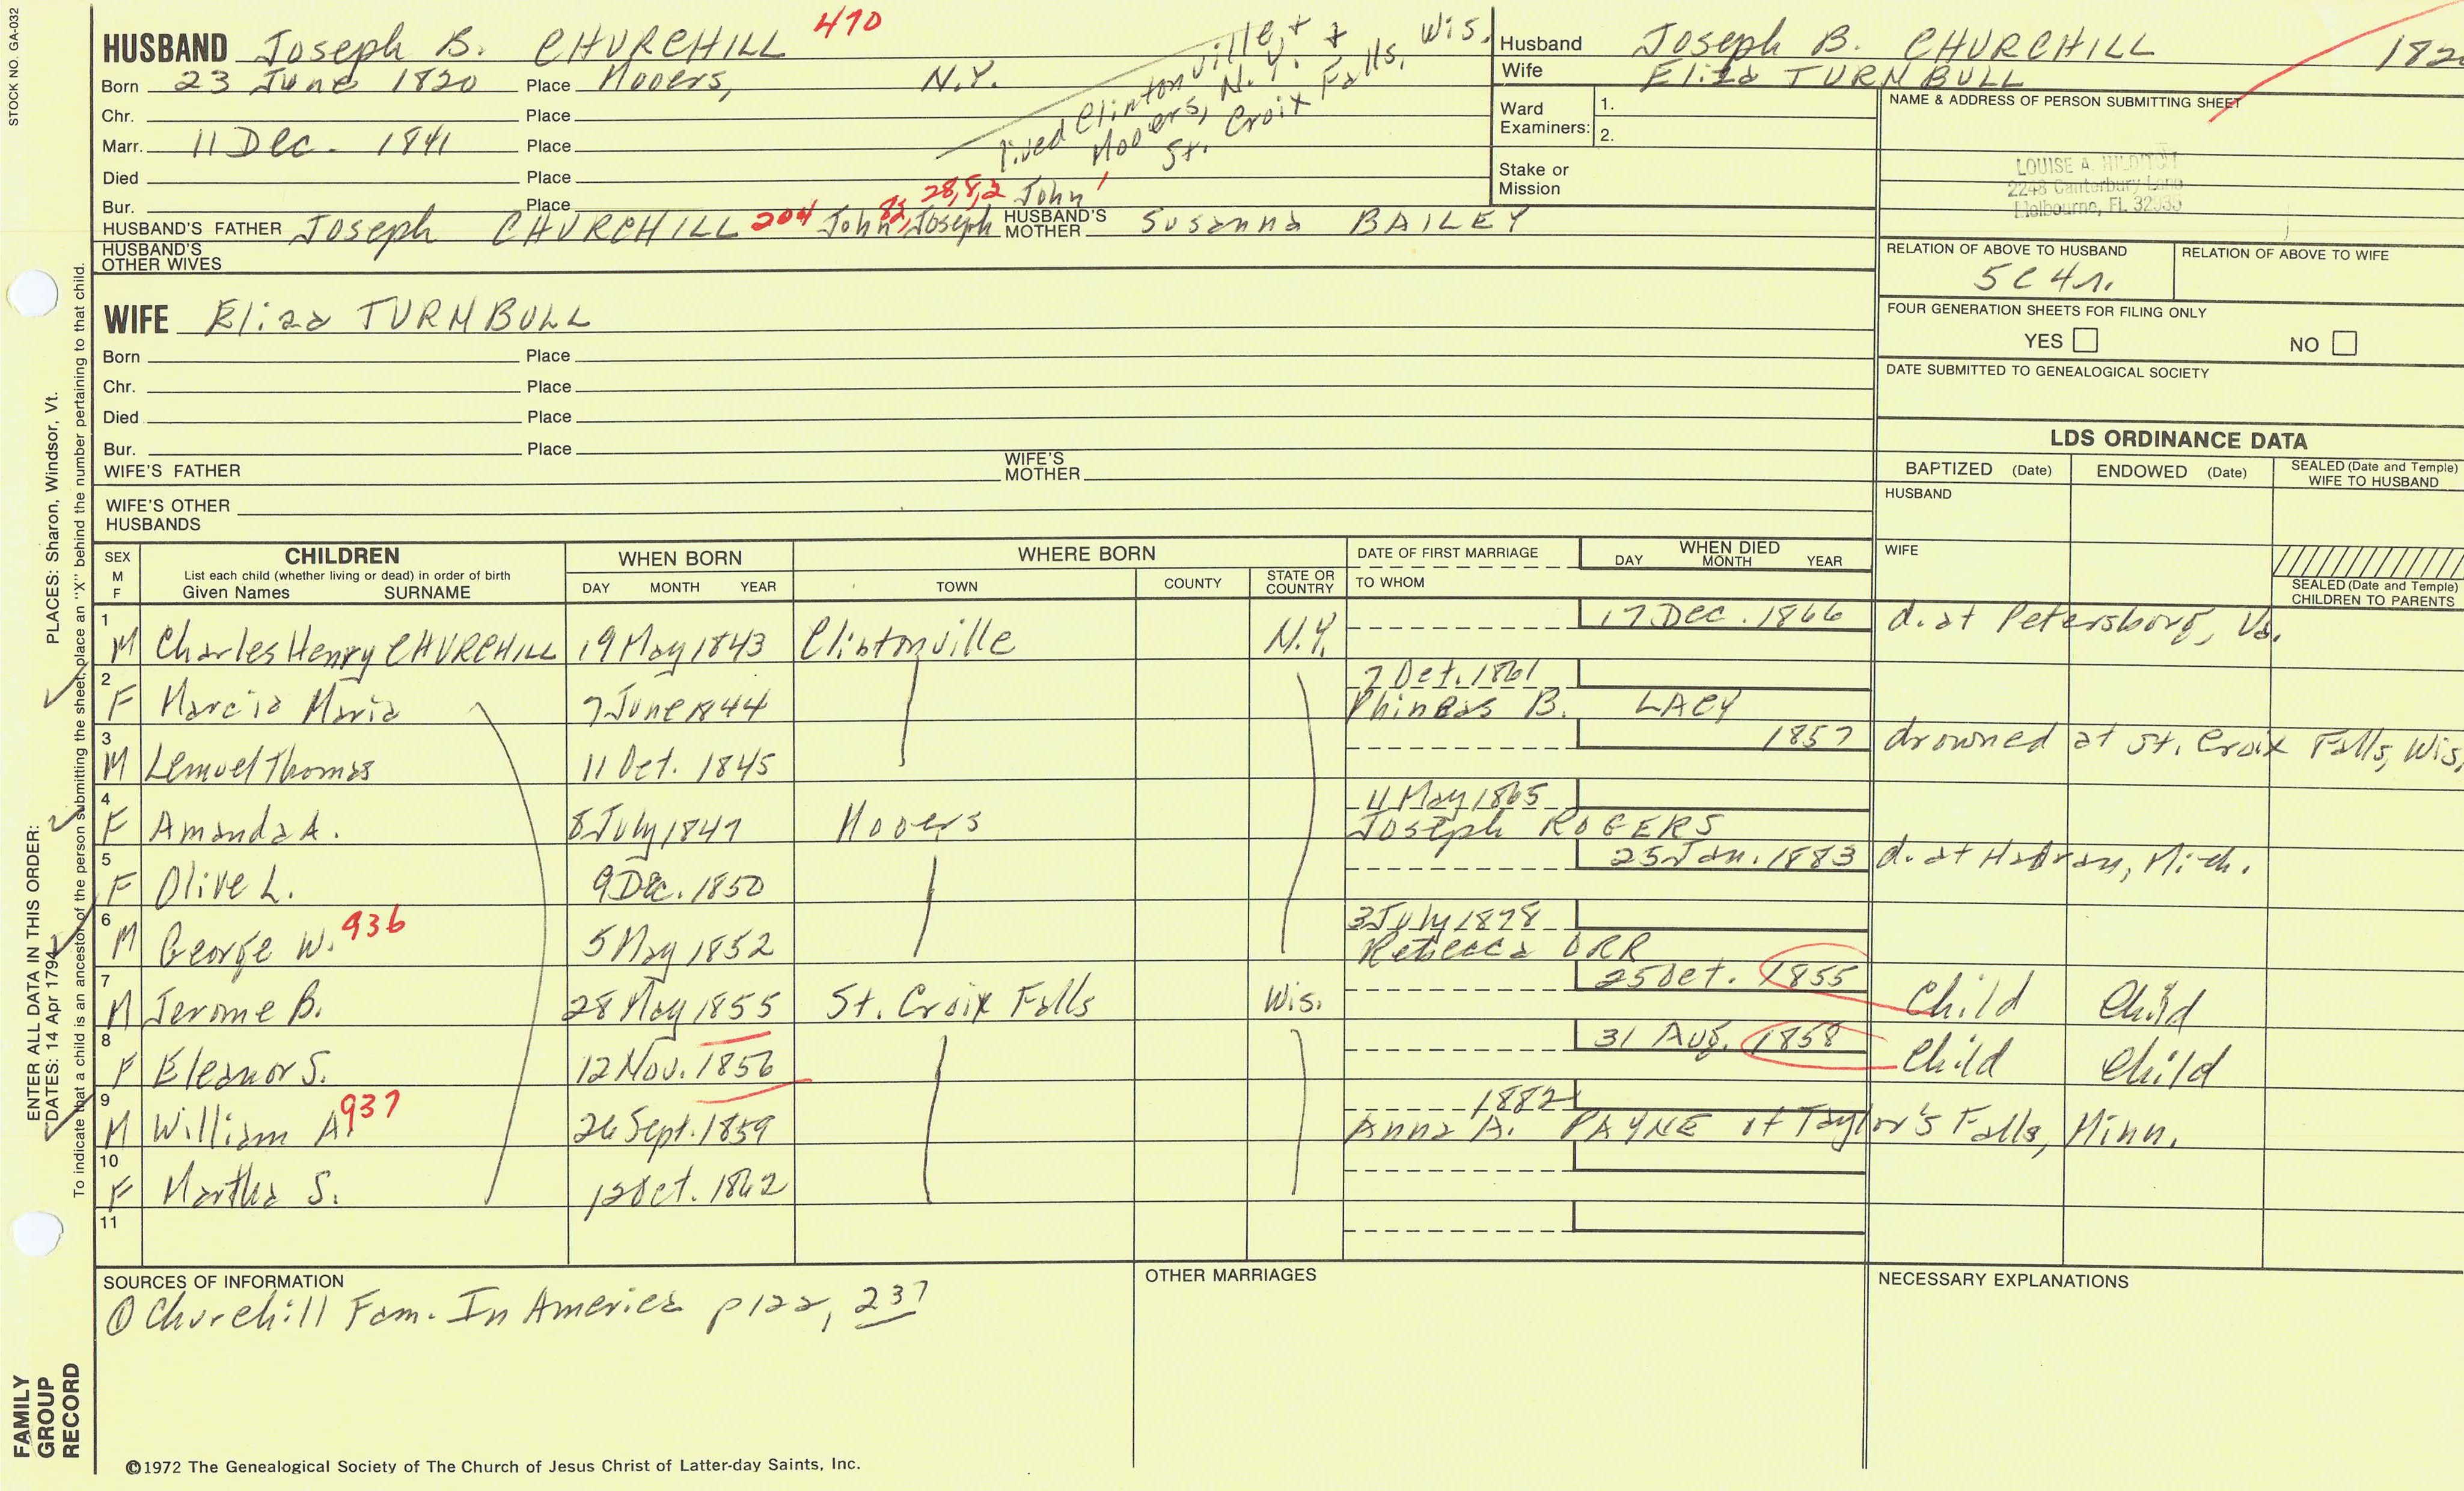 STOCK NO. GA-032
HUSBAND Joseph B. CHURCHILL 470
Born 23 June 1820 Place Mooers, N.Y.
Chr. Place
Marr. 11 Dec. 1841 Place
Died Place
Bur. Place
lived Clintonville, +
Mooers, N.Y. +
St. Croix Falls, Wis.
28,8,2 John 1
HUSBAND'S FATHER Joseph CHURCHILL 204 John 82, Joseph HUSBAND'S MOTHER Susanna BAILEY
HUSBAND'S OTHER WIVES
WIFE Eliza TURNBULL
Born Place
Chr. Place
Died Place
Bur. Place
WIFE'S FATHER WIFE'S MOTHER
WIFE'S OTHER HUSBANDS
Husband Joseph B. CHURCHILL 182
Wife Eliza TURNBULL
Ward Examiners: 1.
2.
Stake or Mission
NAME & ADDRESS OF PERSON SUBMITTING SHEET
LOUISE A.
2248 Canterbury Lane
Melbourne, FL
RELATION OF ABOVE TO HUSBAND RELATION OF ABOVE TO WIFE
5C4r.
FOUR GENERATION SHEETS FOR FILING ONLY
YES NO
DATE SUBMITTED TO GENEALOGICAL SOCIETY
LDS ORDINANCE DATA
BAPTIZED (Date) ENDOWED (Date) SEALED (Date and Temple) WIFE TO HUSBAND
HUSBAND
WIFE
SEALED (Date and Temple) CHILDREN TO PARENTS
SEX M F CHILDREN WHEN BORN WHERE BORN DATE OF FIRST MARRIAGE WHEN DIED
List each child (whether living or dead) in order of birth
Given Names SURNAME DAY MONTH YEAR TOWN COUNTY STATE OR COUNTRY TO WHOM DAY MONTH YEAR
1 M Charles Henry CHURCHILL 19 May 1843 Clintonville N.Y. 17 Dec. 1866 d. at Petersborg, Va.
2 F Marcia Maria 7 June 1844 7 Oct. 1861
Phineas B. LACY
3 M Lemuel Thomas 11 Oct. 1845 1857 drowned at St. Croix Falls, Wis.
4 F Amanda A. 8 July 1847 Mooers 4 May 1865
Joseph ROGERS
5 F Olive L. 9 Dec. 1850 25 Jan. 1883 d. at Mich.
6 M George W. 936 5 May 1852 3 July 1878
Rebecca ORR
7 M Jerome B. 28 May 1855 St. Croix Falls Wis. 25 Oct. 1855 Child Child
8 F Eleanor S. 12 Nov. 1856 31 Aug. 1858 Child Child
9 M William A. 937 26 Sept. 1859 1882
Anna A. PAYNE of Taylor's Falls, Minn.
10 F Martha S. 12 Oct. 1862
11
SOURCES OF INFORMATION OTHER MARRIAGES NECESSARY EXPLANATIONS
① Churchill Fam. In America p122, 237
©1972 The Genealogical Society of The Church of Jesus Christ of Latter-day Saints, Inc.
FAMILY GROUP RECORD
ENTER ALL DATA IN THIS ORDER:
DATES: 14 Apr 1794
PLACES: Sharon, Windsor, Vt.
To indicate that a child is an ancestor of the person submitting the sheet, place an "X" behind the number pertaining to that child.